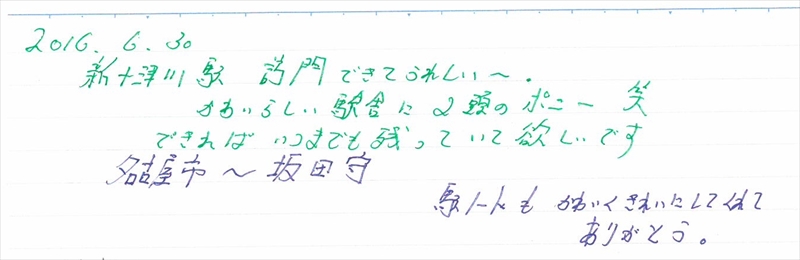 2016.6.30
新十津川駅 訪問できてうれしい～.
かわいらしい駅舎に2頭のポニー 笑
できればいつまでも残っていて欲しいです
名古屋市～坂田守
駅ノートも かわいくきれいにしてくれて
ありがとう。